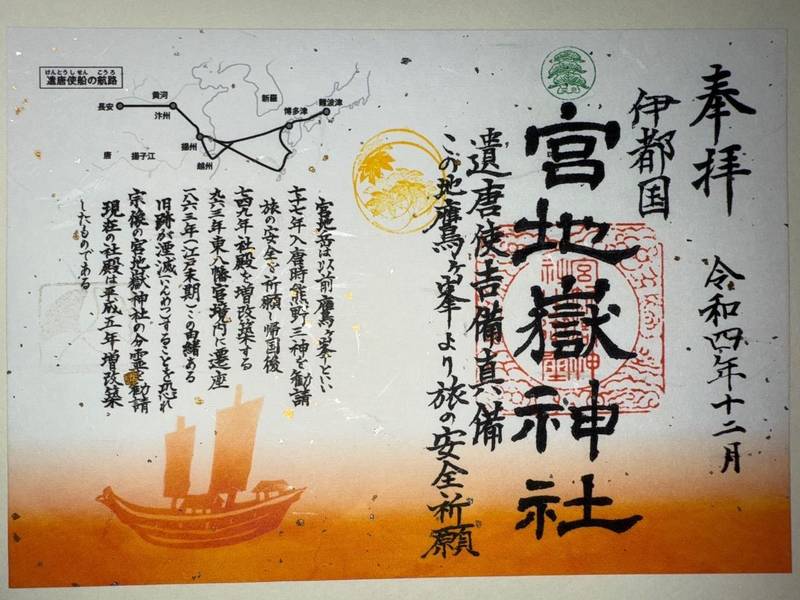 奉拝
伊都国
令和四年十二月
宮地嶽神社
遣唐使吉備真備
この地鷹ヶ峯より旅の安全祈願
けんとうしせん こうろ
遣唐使船の航路
長安
黄河
汴州
新羅
博多津
難波津
揚州
越州
唐
揚子江
宮地岳は以前鷹ヶ峯とい
七一七年入唐時熊野三神を勧請
旅の安全を祈願し帰国後
七四九年社殿を増改築する
九六三年東八幡宮境内に遷座
一八六三年(江戸末期)この由緒ある
旧跡が湮滅(いんめつ)することを恐れ
宗像の宮地嶽神社の分霊を勧請
現在の社殿は平成五年増改築
したものである